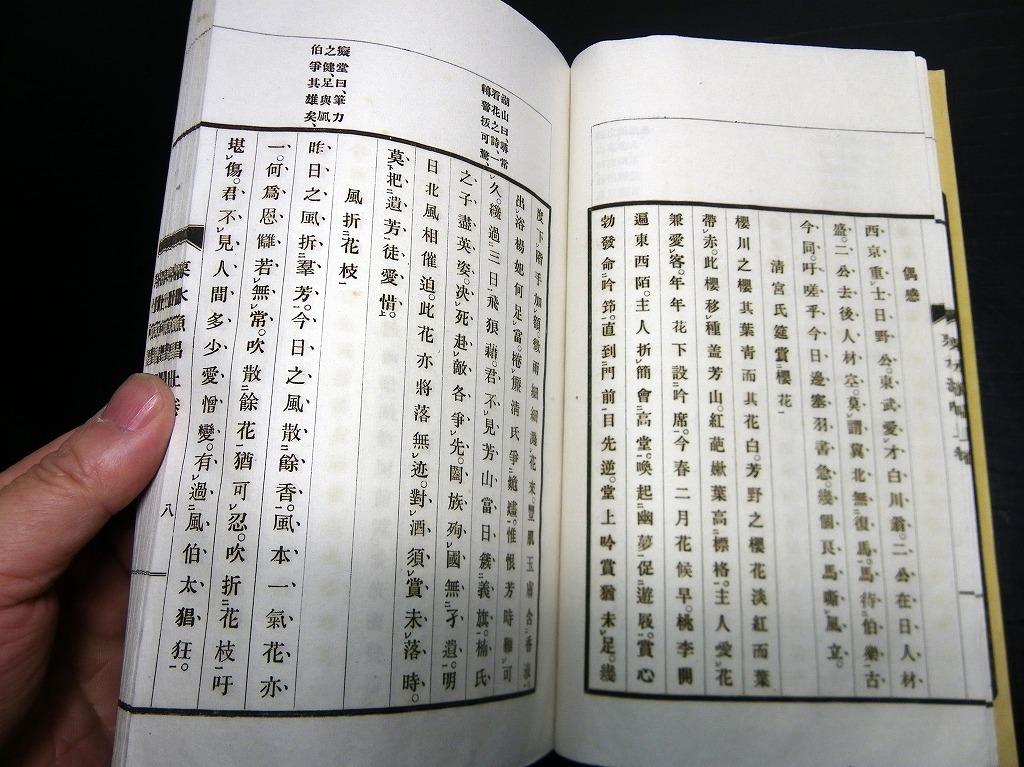 偶感
西京重士日野公。東武愛才白川翁。二公在日人材
盛。二公去後人材空。莫謂冀北無復馬。馬待伯樂古
今同。吁嗟乎今日邊塞羽書急。幾個良馬嘶風立。
清宮氏筵賞櫻花
櫻川之櫻其葉青而其花白。芳野之櫻花淡紅而葉
帶赤。此櫻移種蓋芳山。紅葩嫩葉高標格。主人愛花
兼愛客。年年花下設吟席。今春二月花候早。桃李開
遍東西陌。主人折簡會高堂。喚起幽夢促遊屐。賞心
勃發命吟筇。直到門前目先逆。堂上吟賞猶未足。幾
度下階手加額。微雨細細濺花來。豐肌玉膚含香液。
出浴楊妃何足富。捲簾清氏爭。惟恨芳時難可
久。纔過三日飛狼藉。君不見芳山當日簇義旗。楠氏
之子盡英姿。決死赴敵各爭先。闔族殉國無孑遺。明
日北風相催迫。此花亦將落無迹。對酒須賞未落時。
莫把遺芳徒愛惜。
風折花枝
昨日之風折羣芳。今日之風散餘香。風本一氣花亦
一。何爲恩讎若無常。吹散餘花猶可忍。吹折花枝吁
堪傷。君不見人間多少愛憎變。有過風伯太猖狂。
湖山曰、尋常
看花之詩、一
轉警拔可驚、
癡堂曰、筆力
之健、足與風
伯爭其雄矣、
八